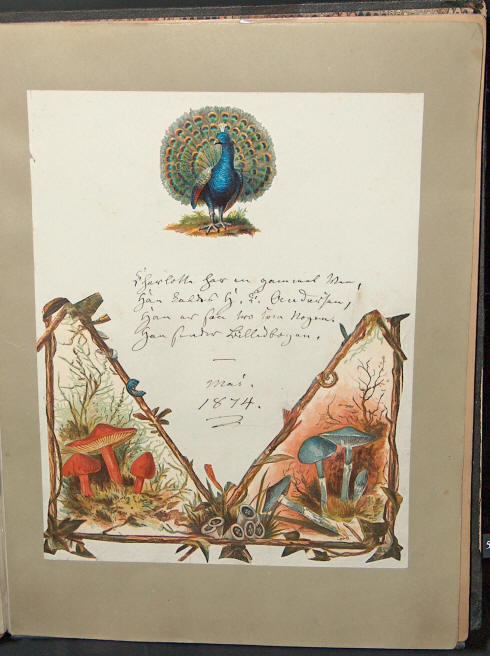 Charlotte har en gammel Ven,
Han kaldes H. C. Andersen,
Han er saa tro som Nogen.
Han sender Billedbogen.
Mai.
1874.